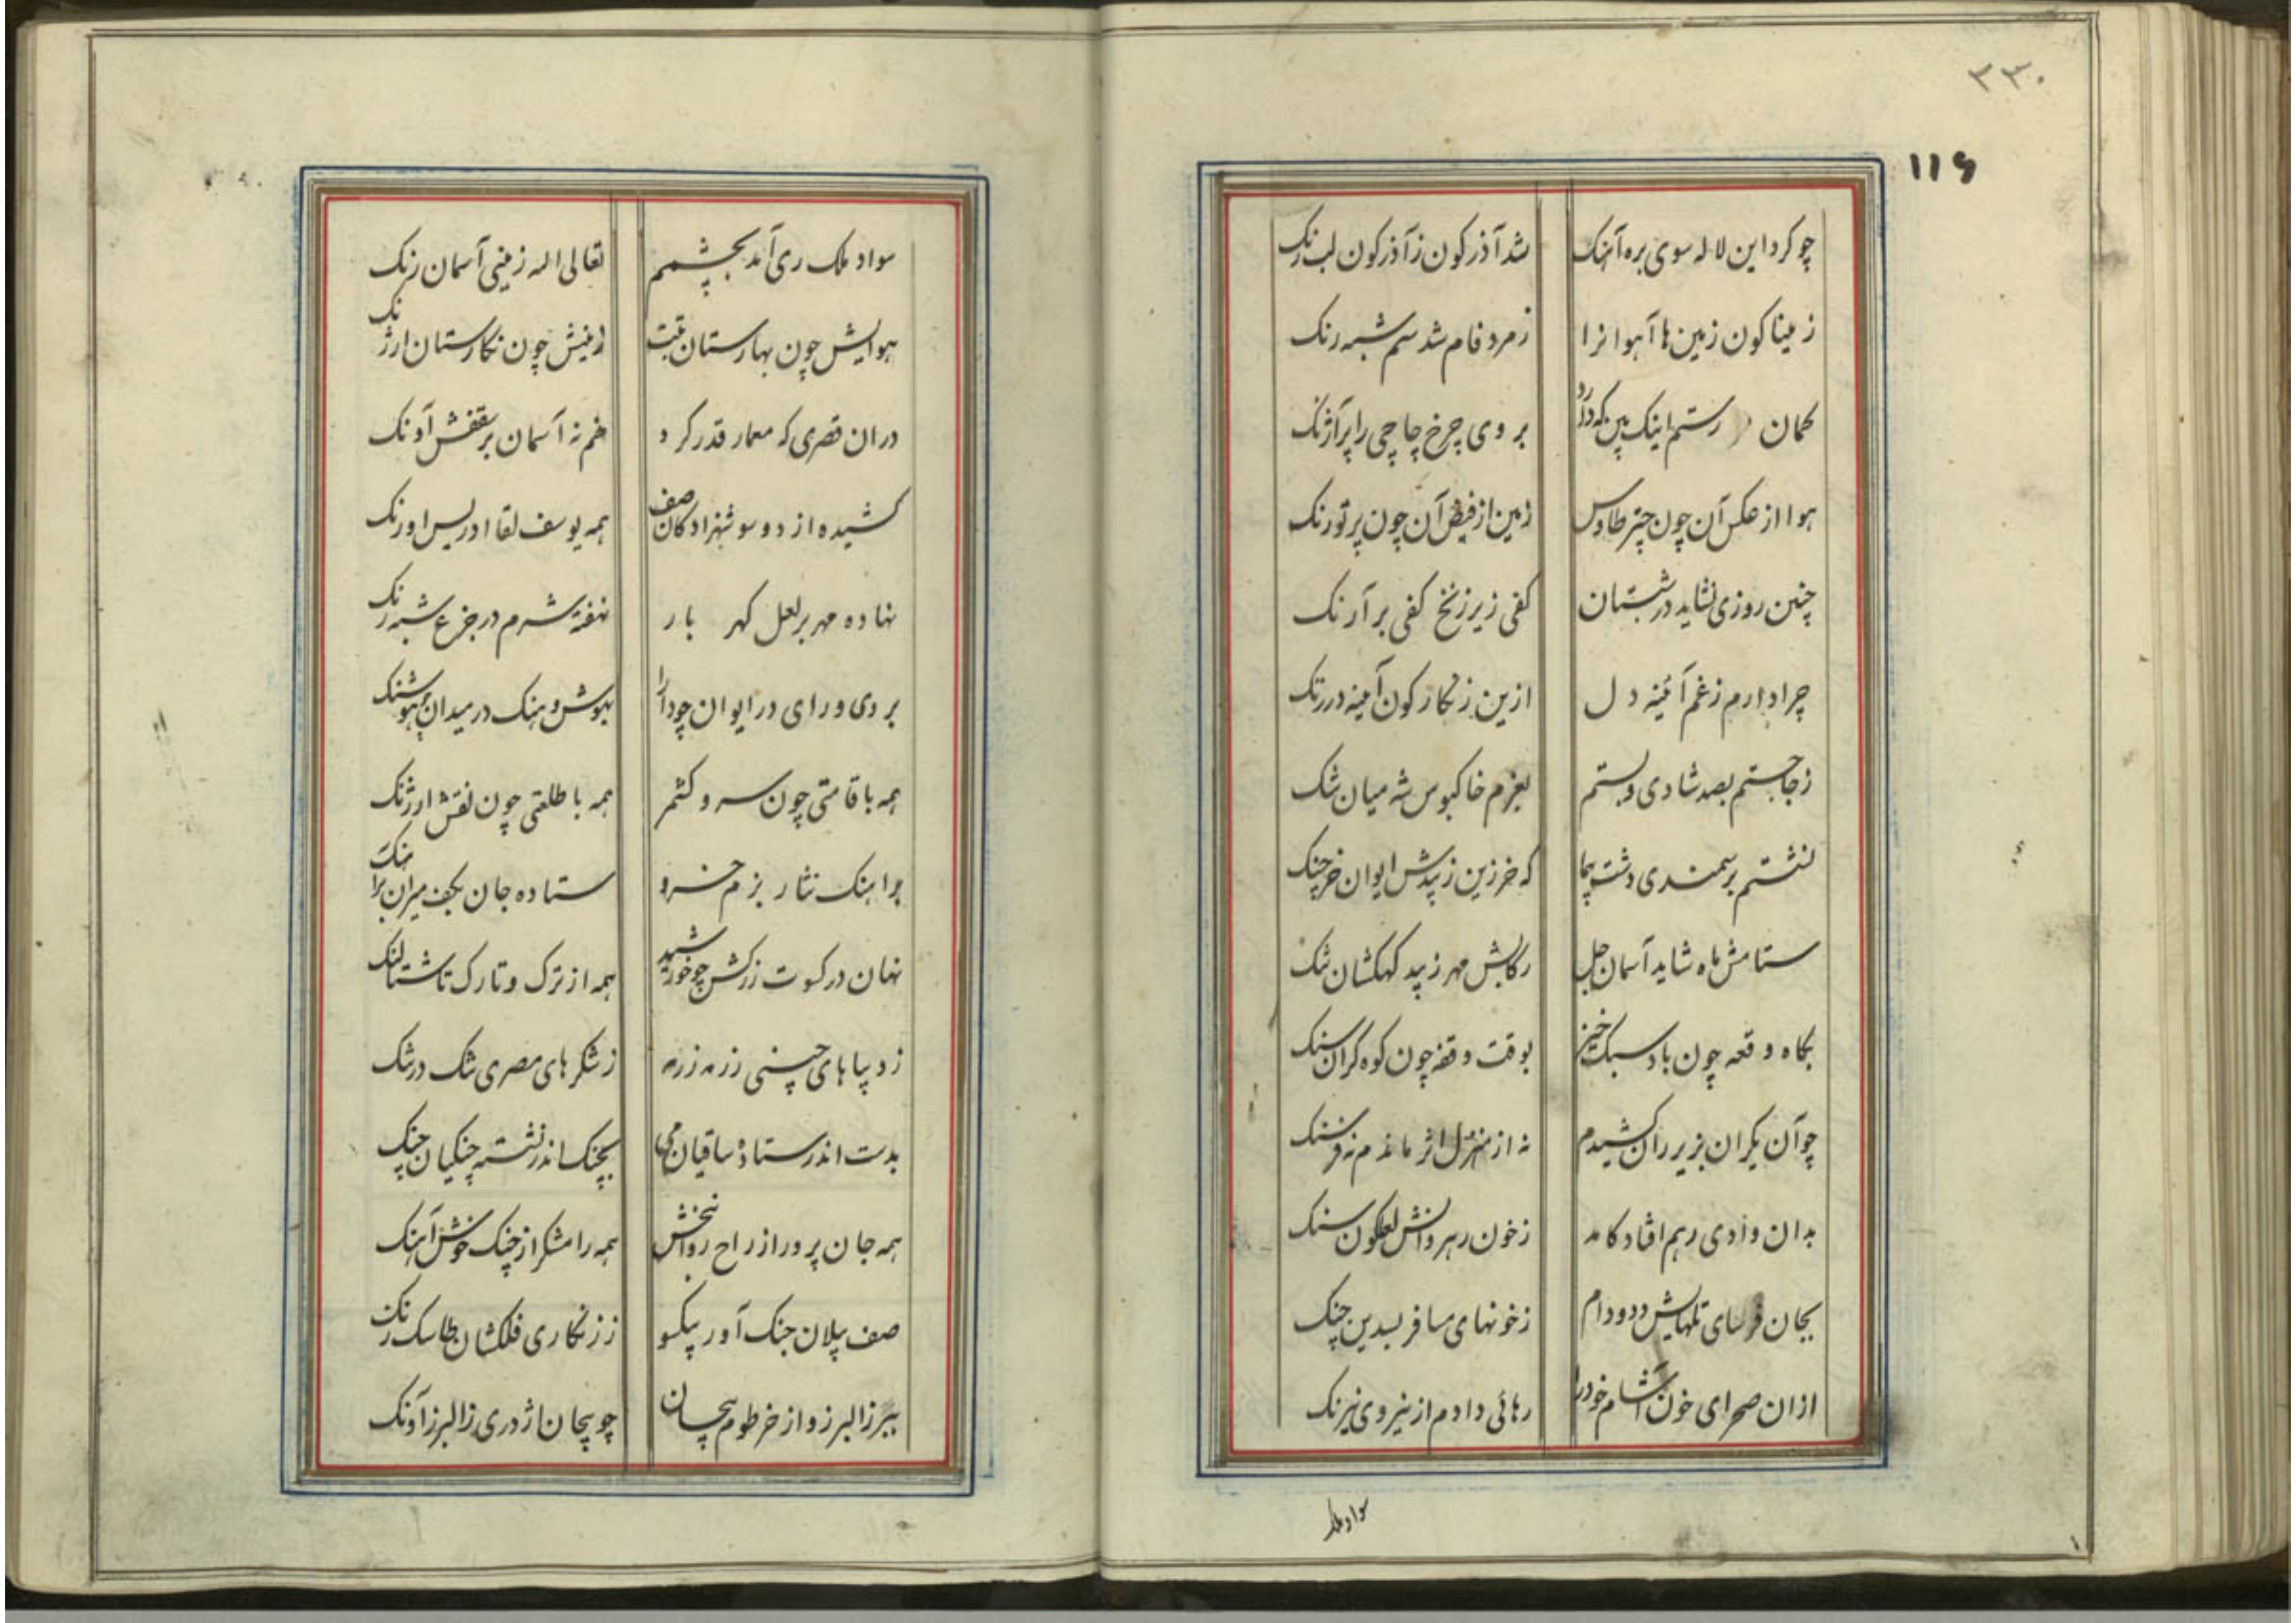 ۲۳۰
۱۱۶
چو کرد این لاله سوی بره آهنک شد آذرکون ز آذرکون لب رنک
ز میناکون زمین ها آهوانرا زمرد فام شد سم شبه رنک
کمان رستم اینک بین که دارد بروی چرخ چاچی را پر آژنک
هوا از عکس آن چون چتر طاوس زمین از فیض آن چون پر تورنک
چنین روزی نشاید در شبستان کفی زیر زنخ کفی بر آرنک
چرا دارم ز غم آئینه دل ازین زنکارکون آینه در زنک
ز جا جستم بصد شادی و بستم بعزم خاکبوس شه میان تنک
نشستم بر سمندی دشت پیما که خر زین زیبدش ایوان خرچنک
ستامش ماه شاید آسمان جل رکابش مهر زیبد کهکشان تنک
بگاه وقعه چون باد سبک خیز بوقت وقفه چون کوه کران سنک
چو آن یکران بزیر ران کشیدم نه از منزل اثر ماندم نه فرسنک
بدان وادی رهم افتاد کامد ز خون رهروانش لعلکون سنک
بجان فرسای تلهایش دد و دام ز خونهای مسافر بسدین چنک
ازان صحرای خون آشام خود را رهائی دادم از نیروی نیرنک
سواد ملک
سواد ملک ری آمد بچشمم تعالی اله زمینی آسمان رنک
هوایش چون بهارستان تبت زمینش چون نکارستان ارژنک
دران قصری که معمار قدر کرد خم نه آسمان بر سقفش آونک
کشیده از دو سو شهزادکان صف همه یوسف لقا ادریس اورنک
نهاده مهر بر لعل کهر بار نهفته شرم در جزع شبه رنک
بروی و رای در ایوان چو دارا بهوش و هنک در میدان چو هوشنک
همه با قامتی چون سرو کشمر همه با طلعتی چون نقش ارژنک
بر اهنک نثار بزم خسرو ستاده جان بکف میران براهنک
نهان در کسوت زرکش چو خورشید همه از ترک و تارک تا شتالنک
ز دیباهای چینی رزمه رزمه ز شکرهای مصری تنک در تنک
بدست اندر ستاده ساقیان می بچنک اندر نشسته چنکیان چنک
همه جان پرور از راح روانبخش همه رامشکر از چنک خوش آهنک
صف پیلان جنک آور بیکسو ز زنکاری فلکشان طاسک زنک
ببرز البرز و از خرطوم پیچان چو پیچان اژدری ز البرز آونک